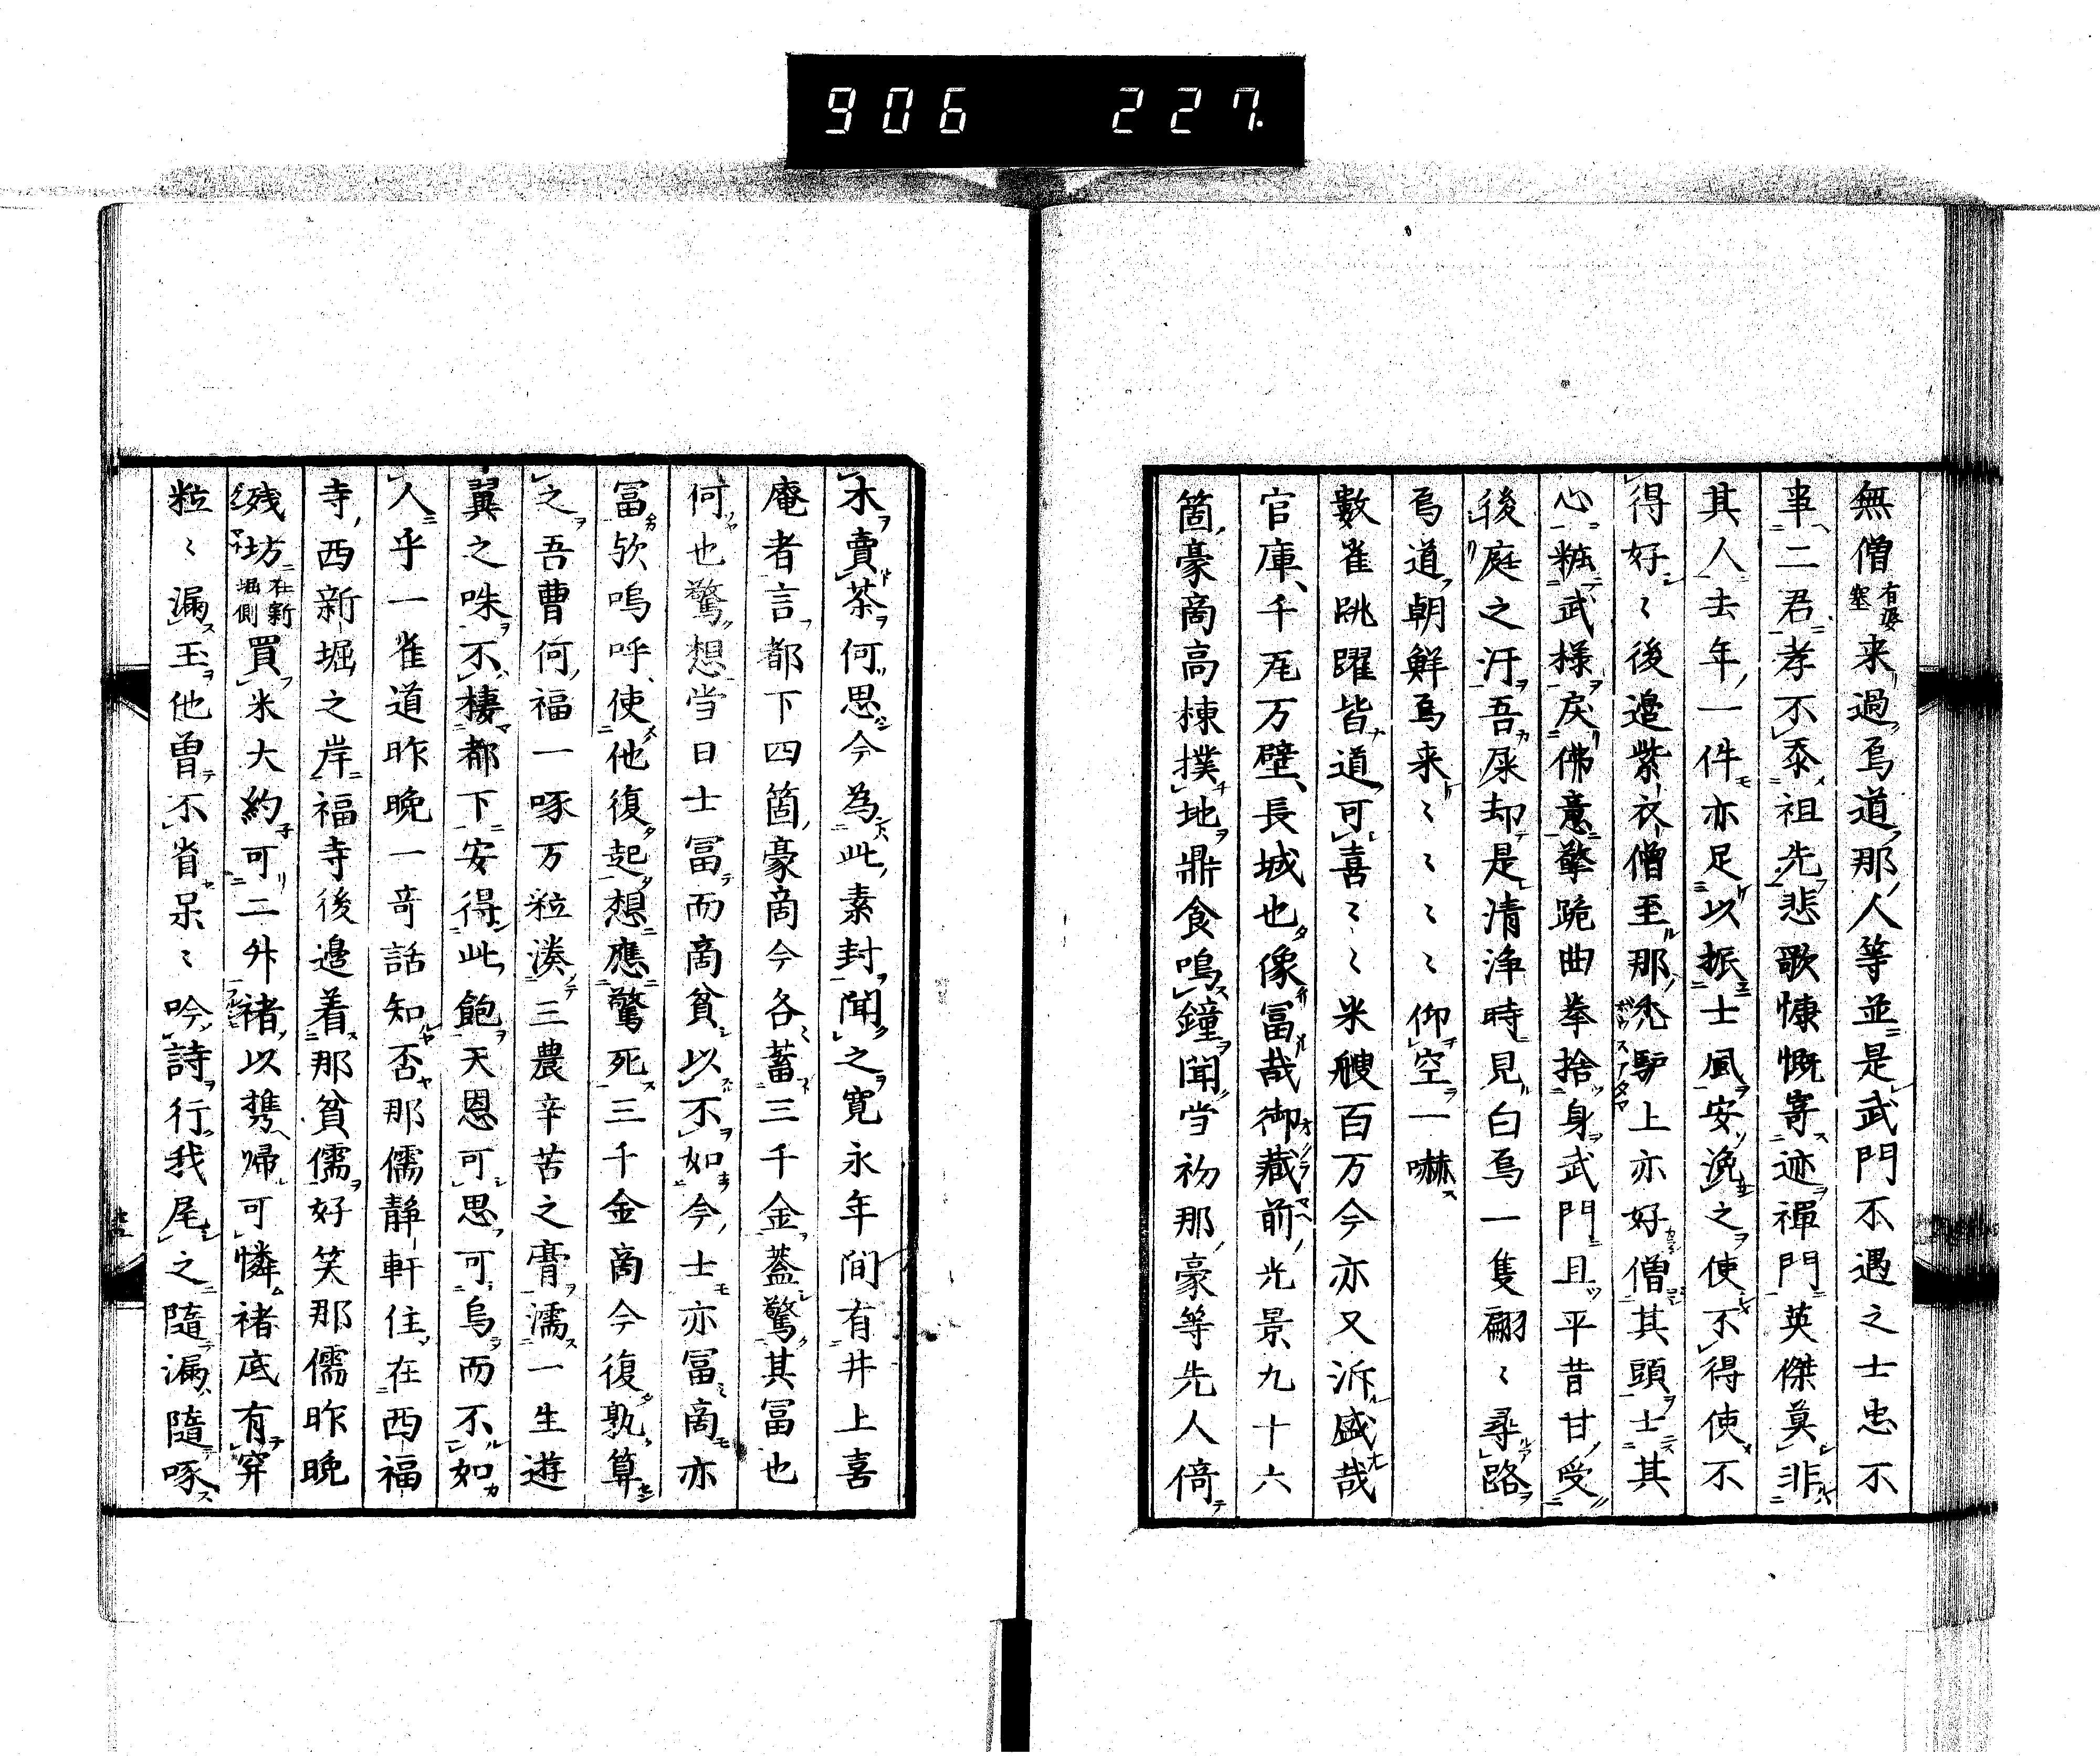 906 227.
無僧有婆塞来過烏道那人等並是武門不遇之士忠不
事二君孝不忝祖先悲歌慷慨寄迹禅門英傑莫非
其人去年一件亦足以振士風安浼之使不得使不
得好〻後邉紫衣僧至那禿驢上亦好僧其頭士其
心粧武様戻佛意擎跪曲拳捨身武門且平昔甘受
後庭之汙吾屎却是清浄時見白烏一隻翩〻尋路
烏道朝鮮烏来〻〻〻〻仰空一嚇
數雀跳躍皆道可喜〻〻米艘百万今亦又泝盛哉
官庫千瓦万壁長城也像冨哉御藏前光景九十六
箇豪商高棟撲地鼎食鳴鐘聞当初那豪等先人倚
木賣茶何思今為此素封聞之寛永年间有井上喜
庵者言都下四箇豪商今各蓄三千金蓋驚其冨也
何也驚想当日士冨而商貧以不如今士亦冨商亦
冨欤嗚呼使他復起想應驚死三千金商今復孰算
之吾曹何福一啄万粒湊三農辛苦之膏濡一生遊
翼之咮不棲都下安得此飽天恩可思可烏而不如
人乎一雀道昨晩一奇話知否那儒静軒住在西福
寺西新堀之岸福寺後邉着那貧儒好笑那儒昨晩
残坊在新堀側買米大約可二升褚以携帰可憐褚底有穽
粒〻漏玉他曽不省呆〻吟詩行我尾之隨漏隨啄